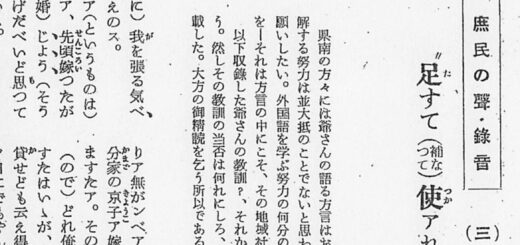 庶民の聲・録音(三)
〝足すて(補なつて)使ア
県南の方々には爺さんの語る方言はお
解する努力は並大抵のことでないと思わ
願いしたい。外国語を学ぶ努力の何分の
を―それは方言の中にこそ、その地域社
以下収録した爺さんの教訓?、それか
。然しその教訓の当否は何れにしろ、
載した。大方の御精読を乞う所以である
に)我を張る気べ、
えのス。
ア(というものは)
ア、先頃嫁つたが
婚)じょう(そう
げだべいど思つて
りア無がンベア
分家の京子ア嫁
ますたア。その
(ので)どれ俺
すたはいゝが、
貸せども云え得